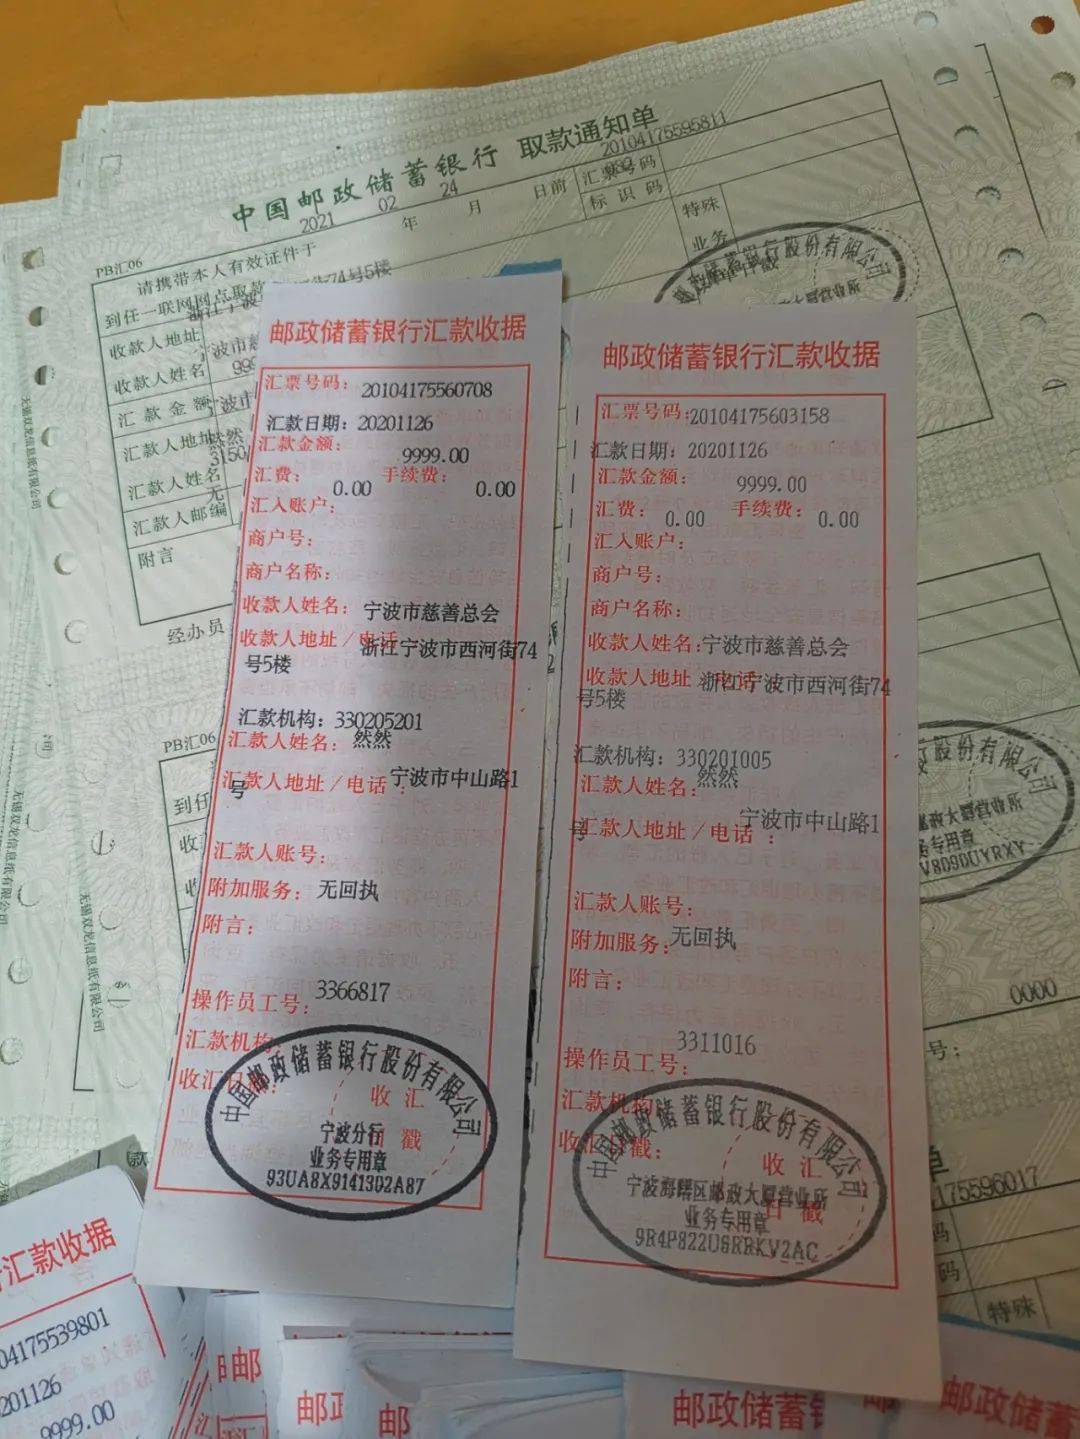 中国邮政储蓄银行 取款通知单
2021 年 02 月 24 日前
汇票号码 20104175595811
标识码
特殊
业务
PB汇06
请携带本人有效证件于
到任一联网网点取款
收款人地址
收款人姓名
汇款金额
汇款人地址
汇款人姓名 然然
汇款人邮编
附言
经办员
PB汇06
无锡双龙信息纸有限公司
无锡双龙信息纸有限公司
邮政储蓄银行汇款收据
汇票号码：20104175560708
汇款日期：20201126
汇款金额：9999.00
汇费：0.00 手续费：0.00
汇入账户：
商户号：
商户名称：
收款人姓名：宁波市慈善总会
收款人地址／电话 浙江宁波市西河街74
号5楼
汇款机构：330205201
汇款人姓名：然然
汇款人地址／电话：宁波市中山路1
号
汇款人账号：
附加服务：无回执
附言：
操作员工号：3366817
汇款机构
收汇日戳：
收汇
日戳
中国邮政储蓄银行股份有限公司
宁波分行
业务专用章
93UA8X9141302A87
邮政储蓄银行汇款收据
汇票号码：20104175603158
汇款日期：20201126
汇款金额：9999.00
汇费：0.00 手续费：0.00
汇入账户：
商户号：
商户名称：
收款人姓名：宁波市慈善总会
收款人地址 电话 浙江宁波市西河街74
号5楼
汇款机构：330201005
汇款人姓名：然然
汇款人地址／电话：宁波市中山路1
号
汇款人账号：
附加服务：无回执
附言：
操作员工号：3311016
汇款机构
收汇日戳：
收汇
日戳
中国邮政储蓄银行股份有限公司
宁波海曙区邮政大厦营业所
业务专用章
9R4P822U6RRKV2AC
股份有限公司
邮政大厦营业所
务专用章
V8090UYRXY
0000
号：
175596017
特殊
汇款收据
04175539801
201126
9999.00
邮政储蓄
邮政储蓄